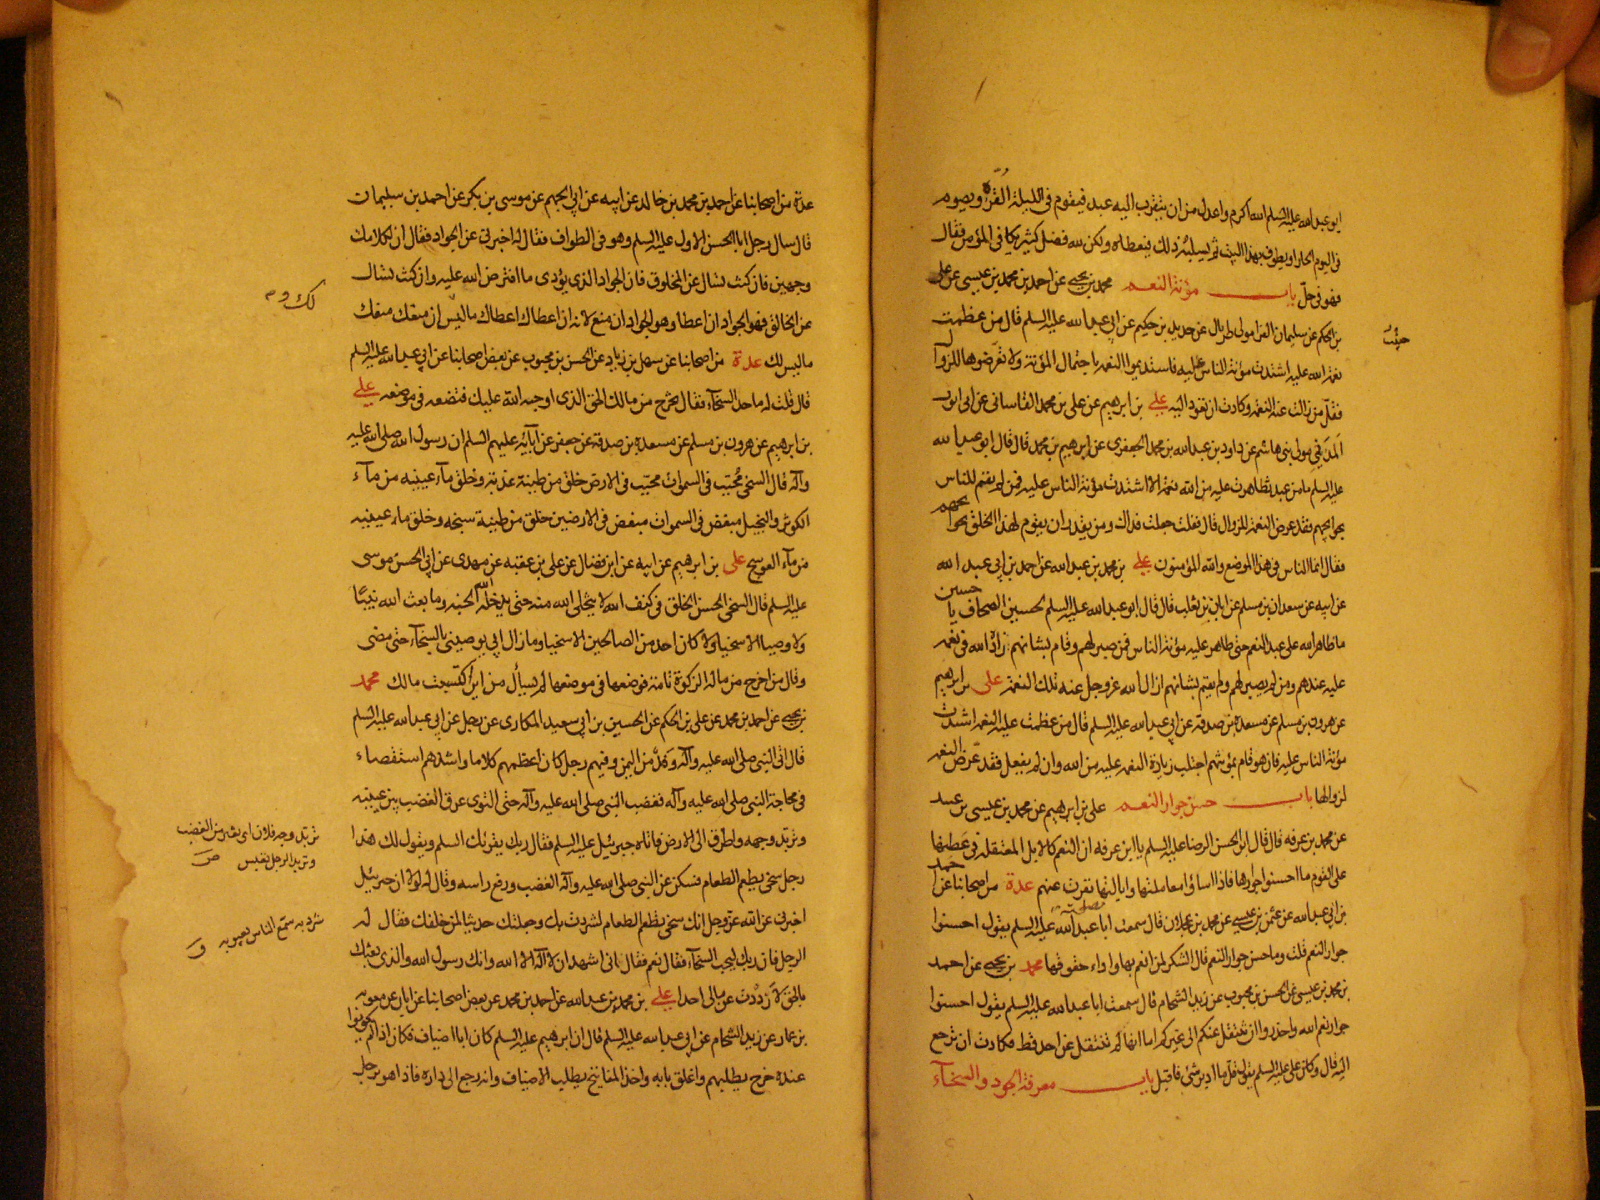 ابو عبد الله عليه السلم الله اكرم واعدل من ان يتقرب اليه عبد فيقوم فى الليلة القرة ويصوم
فى اليوم الحار او يطوف بهذا البيت ثم يسلبه ذلك فيعطله ولكن لله فضل كثير يكافى المؤمن فقال
فهو فى حل باب مؤنة النعم محمد بن يحيى عن احمد بن محمد بن عيسى عن على
بن الحكم عن سليمان الفرا مولى طربال عن حديد بن حكيم عن ابى عبد الله عليه السلم قال من عظمت
نعمة الله عليه اشتدت مؤنة الناس عليه فاستديموا النعمة باحتمال المؤنة ولا تعرضوها للزوال
فقل من زالت عنه النعمة وكادت ان تعود اليه على بن ابرهيم عن على بن محمد القاسانى عن ابى ايوب
المدنى مولى بنى هاشم عن داود بن عبد الله بن محمد الجعفرى عن ابرهيم بن محمد قال قال ابو عبد الله
عليه السلم ما من عبد تظاهرت عليه من الله نعمة الا اشتدت مؤنة الناس عليه فمن لم يقم للناس
بحوايجهم فقد عرض النعمة للزوال قال فقلت جعلت فداك ومن يقدر ان يقوم لهذا الخلق بحوايجهم
فقال انما الناس فى هذا الموضع والله المؤمنون على بن محمد بن عبد الله عن احمد بن ابى عبد الله
عن ابيه عن سعدان بن مسلم عن ابان بن تغلب قال قال ابو عبد الله عليه السلم لحسين الصحاف يا حسين
ما ظاهر الله على عبد النعم حتى ظاهر عليه مؤنة الناس فمن صبر لهم وقام بشانهم زاد الله فى نعمه
عليه عندهم ومن لم يصبر لهم ولم يقم بشانهم ازال الله عز وجل عنه تلك النعمة على بن ابرهيم
عن هرون بن مسلم عن مسعدة بن صدقة عن ابى عبد الله عليه السلم قال من عظمت عليه النعمة اشتدت
مؤنة الناس عليه فان هو قام بمؤنتهم اجتلب زيادة النعمة عليه من الله وان لم يفعل فقد عرض النعمة
لزوالها باب حسن جوار النعم على بن ابرهيم عن محمد بن عيسى بن عبيد
عن محمد بن عرفة قال قال ابو الحسن الرضا عليه السلم يا ابن عرفه ان النعم كالابل المعتقلة فى عطنها
على القوم ما احسنوا جوارها فاذا اساؤا معاملتها وايالتها نفرت عنهم عدة من اصحابنا عن احمد
بن ابى عبد الله عن عثمن بن عيسى عن محمد بن عجلان قال سمعت ابا عبد الله عليه السلم يقول احسنوا
جوار النعم قلت وما حسن جوار النعم قال الشكر لمن انعم بها واداء حقوقها محمد بن يحيى عن احمد
بن محمد بن عيسى عن الحسن بن محبوب عن زيد الشحام قال سمعت ابا عبد الله عليه السلم يقول احسنوا
جوار نعم الله واحذروا ان تنتقل عنكم الى غيركم اما انها لم تنتقل عن احد قط فكادت ان ترجع
اليه قال وكان على عليه السلم يقول قل ما ادبر شئ فاقبل باب معرفة الجود والسخآء
عدة من اصحابنا عن احمد بن محمد بن خالد عن ابيه عن ابى الجهم عن موسى بن بكر عن احمد بن سليمان
قال سال رجل ابا الحسن الاول عليه السلم وهو فى الطواف فقال له اخبرنى عن الجواد فقال ان لكلامك
وجهين فان كنت تسال عن المخلوق فان الجواد الذى يؤدى ما افترض الله عليه وان كنت تسال
عن الخالق فهو الجواد ان اعطا وهو الجواد ان منع لانه ان اعطاك اعطاك ما ليس لك وان منعك منعك
ما ليس لك عدة من اصحابنا عن سهل بن زياد عن الحسن بن محبوب عن بعض اصحابنا عن ابى عبد الله عليه السلم
قال قلت له ما حد السخآء فقال تخرج من مالك الحق الذى اوجبه الله عليك فتضعه فى موضعه على
بن ابرهيم عن هرون بن مسلم عن مسعدة بن صدقة عن جعفر عن آبائه عليهم السلم ان رسول الله صلى الله عليه
وآله قال السخى محبب فى السموات محبب فى الارض خلق من طينة عذبة وخلق ماء عينيه من مآء
الكوثر والبخيل مبغض فى السموات مبغض فى الارضين خلق من طينة سبخه وخلق ماء عينيه
من مآء العوسج على بن ابرهيم عن ابيه عن ابن فضال عن على بن عقبه عن مهدى عن ابى الحسن موسى
عليه السلم قال السخى الحسن الخلق فى كنف الله لا يتخلى الله منه حتى يدخله الله الجنة وما بعث الله نبيا
ولا وصيا الا سخيا ولا كان احد من الصالحين الا سخيا وما زال ابى يوصينى بالسخآء حتى مضى
وقال من اخرج من ماله الزكوة تامة فوضعها فى موضعها لم يسأل من اين اكتسبت مالك محمد
بن يحيى عن احمد بن محمد عن على بن الحكم عن الحسين بن ابى سعيد المكارى عن رجل عن ابى عبد الله عليه السلم
قال اتى النبى صلى الله عليه وآله وفد من اليمن وفيهم رجل كان اعظمهم كلاما واشدهم استقصاء
فى محاجة النبى صلى الله عليه وآله فغضب النبى صلى الله عليه وآله حتى التوى عرق الغضب بين عينيه
وتربد وجهه واطرق الى الارض فاتاه جبرئيل عليه السلم فقال ربك يقرئك السلم ويقول لك هذا
رجل سخى يطعم الطعام فسكن عن النبى صلى الله عليه وآله الغضب ورفع راسه وقال له لولا ان جبرئيل
اخبرنى عن الله عز وجل انك سخى تطعم الطعام لشردت بك وجعلتك حديثا لمن خلفك فقال له
الرجل فان ربك ليحب السخآء فقال نعم فقال انى اشهد ان لا اله الا الله وانك رسول الله والذى بعثك
بالحق لا رددت عن مالى احدا على بن محمد بن عبد الله عن احمد بن محمد عن بعض اصحابنا عن ابان عن معويه
بن عمار عن زيد الشحام عن ابى عبد الله عليه السلم قال ان ابرهيم عليه السلم كان ابا اضياف فكان اذا لم يكونوا
عنده خرج يطلبهم واغلق بابه واخذ المفاتيح يطلب الاضياف وانه رجع الى داره فاذا هو برجل
تربد وجه فلان اى تغير من الغضب
وتربد الرجل تعبس ص
شرد به سمع الناس بعيوبه ق